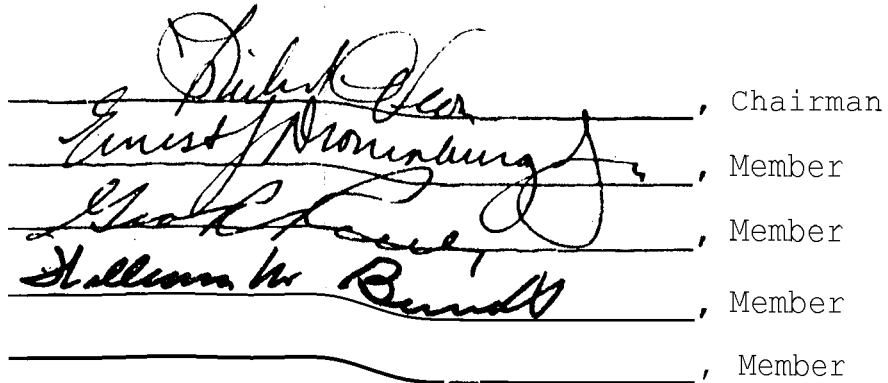 , Chairman
Ernest J Dronenburg Jr. , Member
Geo R Reilly , Member
William M Bennett , Member
, Member